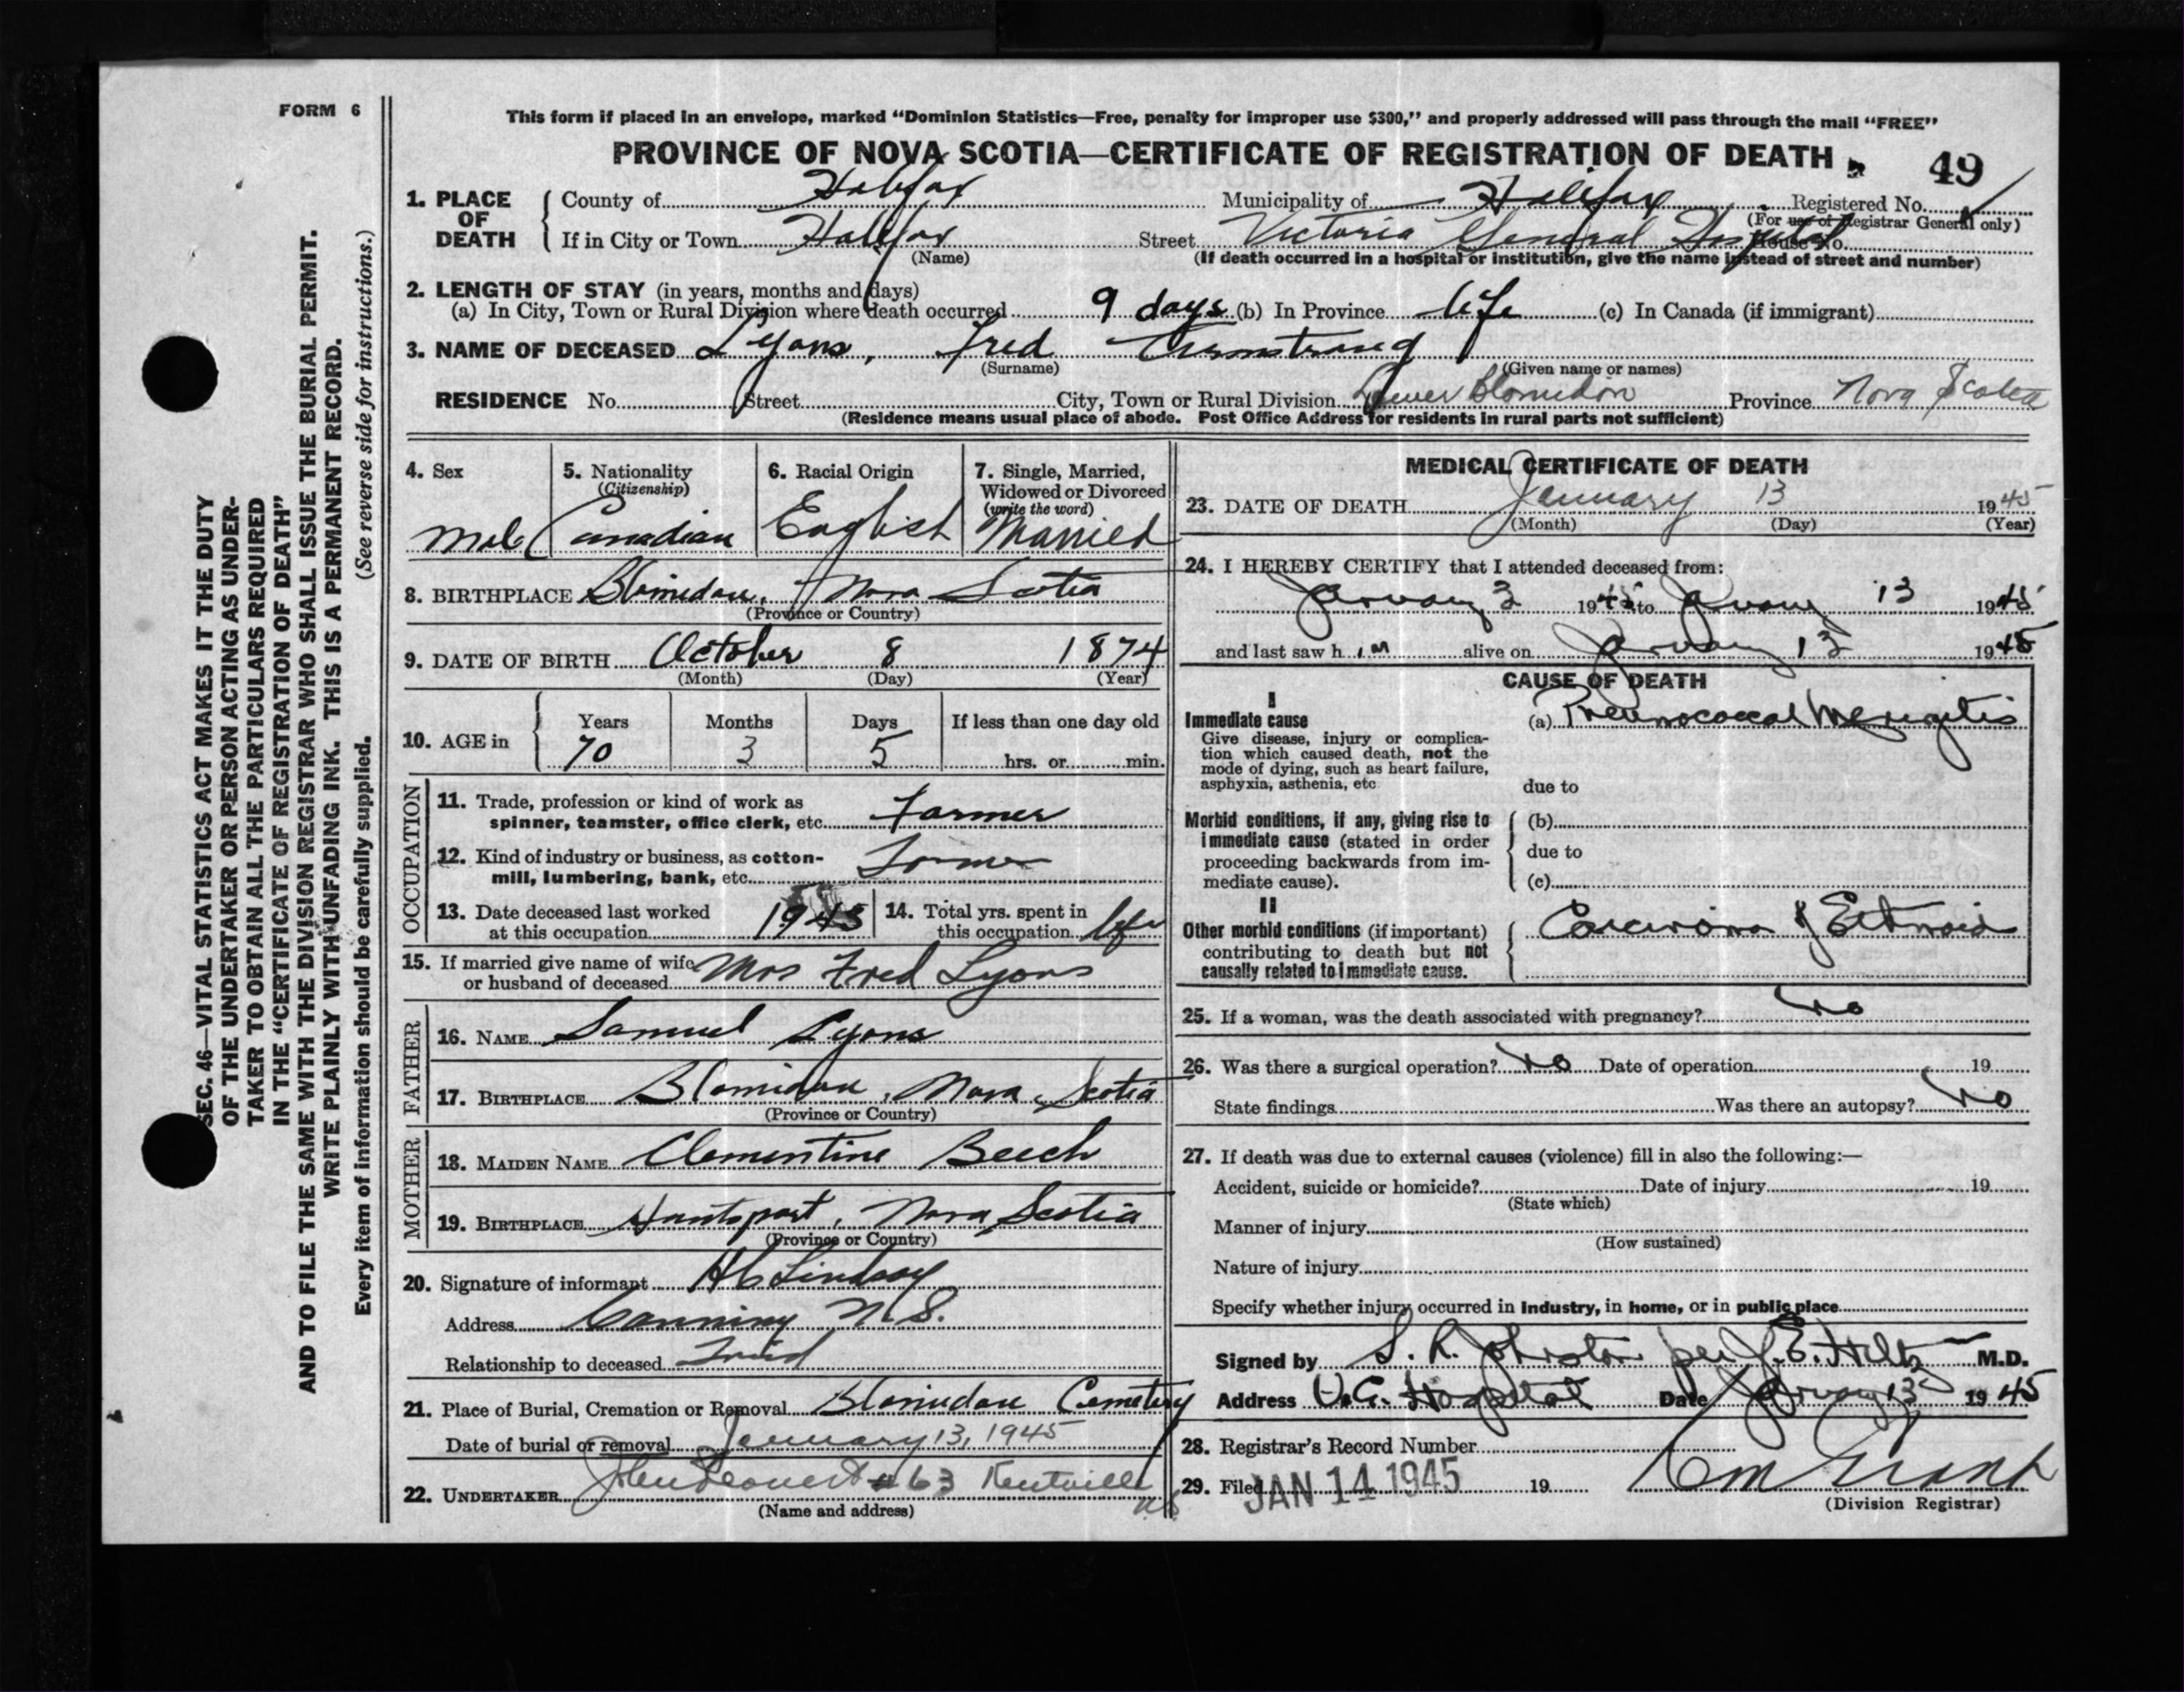 FORM 6
This form if placed in an envelope, marked "Dominion Statistics—Free, penalty for improper use $300," and properly addressed will pass through the mail "FREE"
PROVINCE OF NOVA SCOTIA—CERTIFICATE OF REGISTRATION OF DEATH 49
1. PLACE OF DEATH
County of Halifax Municipality of Halifax Registered No.
(For use of Registrar General only)
If in City or Town Halifax Street Victoria General Hospital House No.
(Name) (If death occurred in a hospital or institution, give the name instead of street and number)
2. LENGTH OF STAY (in years, months and days)
(a) In City, Town or Rural Division where death occurred 9 days (b) In Province life (c) In Canada (if immigrant)
3. NAME OF DECEASED Lyons, Fred Armstrong
(Surname) (Given name or names)
RESIDENCE No. Street City, Town or Rural Division Lower Blomidon Province Nova Scotia
(Residence means usual place of abode. Post Office Address for residents in rural parts not sufficient)
4. Sex
Male
5. Nationality
(Citizenship)
Canadian
6. Racial Origin
English
7. Single, Married,
Widowed or Divorced
(write the word)
Married
8. BIRTHPLACE Blomidon, Nova Scotia
(Province or Country)
9. DATE OF BIRTH October 8 1874
(Month) (Day) (Year)
10. AGE in
Years Months Days If less than one day old
70 3 5 hrs. or min.
OCCUPATION
11. Trade, profession or kind of work as
spinner, teamster, office clerk, etc. Farmer
12. Kind of industry or business, as cotton-
mill, lumbering, bank, etc. Farmer
13. Date deceased last worked
at this occupation 1943
14. Total yrs. spent in
this occupation life
15. If married give name of wife
or husband of deceased Mrs Fred Lyons
FATHER
16. NAME Samuel Lyons
17. BIRTHPLACE Blomidon, Nova Scotia
(Province or Country)
MOTHER
18. MAIDEN NAME Clementine Beech
19. BIRTHPLACE Hantsport, Nova Scotia
(Province or Country)
20. Signature of informant Lindsay
Address Canning N S.
Relationship to deceased Friend
21. Place of Burial, Cremation or Removal Blomidon Cemetery
Date of burial or removal January 13, 1945
22. UNDERTAKER John # 63 Kentville NS
(Name and address)
MEDICAL CERTIFICATE OF DEATH
23. DATE OF DEATH January 13 1945
(Month) (Day) (Year)
24. I HEREBY CERTIFY that I attended deceased from:
January 3 1945 to January 13 1945
and last saw him alive on January 13 1945
CAUSE OF DEATH
I
Immediate cause
Give disease, injury or complica-
tion which caused death, not the
mode of dying, such as heart failure,
asphyxia, asthenia, etc
(a) Pneumococcal Meningitis
due to
Morbid conditions, if any, giving rise to
immediate cause (stated in order
proceeding backwards from im-
mediate cause).
(b)
due to
(c)
II
Other morbid conditions (if important)
contributing to death but not
causally related to immediate cause.
Carcinoma of Ethmoid
25. If a woman, was the death associated with pregnancy? No
26. Was there a surgical operation? No Date of operation 19
State findings Was there an autopsy? No
27. If death was due to external causes (violence) fill in also the following:—
Accident, suicide or homicide? Date of injury 19
(State which)
Manner of injury
(How sustained)
Nature of injury
Specify whether injury occurred in industry, in home, or in public place
Signed by S. R. Johnston per J. E. Hiltz M.D.
Address V.G. Hospital Date January 13 1945
28. Registrar's Record Number
29. Filed JAN 14 1945 19
(Division Registrar)
SEC. 46—VITAL STATISTICS ACT MAKES IT THE DUTY
OF THE UNDERTAKER OR PERSON ACTING AS UNDER-
TAKER TO OBTAIN ALL THE PARTICULARS REQUIRED
IN THE "CERTIFICATE OF REGISTRATION OF DEATH"
AND TO FILE THE SAME WITH THE DIVISION REGISTRAR WHO SHALL ISSUE THE BURIAL PERMIT.
WRITE PLAINLY WITH UNFADING INK. THIS IS A PERMANENT RECORD.
Every item of information should be carefully supplied. (See reverse side for instructions.)